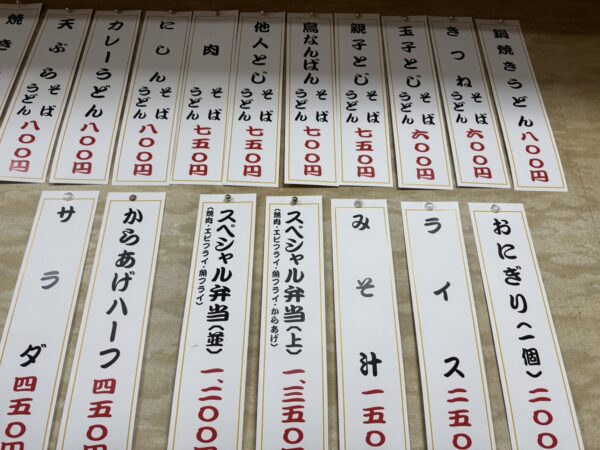 鍋焼きうどん 八〇〇円
きつね そば うどん 六〇〇円
玉子とじ そば うどん 六〇〇円
親子とじ そば うどん 七五〇円
鳥なんばん そば うどん 七〇〇円
他人とじ そば うどん 七五〇円
肉 そば うどん 七五〇円
にしん そば うどん 八〇〇円
カレーうどん 八〇〇円
天ぷら そば うどん 八〇〇円
焼き
おにぎり(一個) 二〇〇
ライス 二五〇
みそ汁 一五〇
スペシャル弁当(上) 一、三五〇
(焼肉・エビフライ・魚フライ・からあげ)
スペシャル弁当(並) 一、二〇〇
(焼肉・エビフライ・魚フライ)
からあげハーフ 四五〇円
サラダ 四五〇円